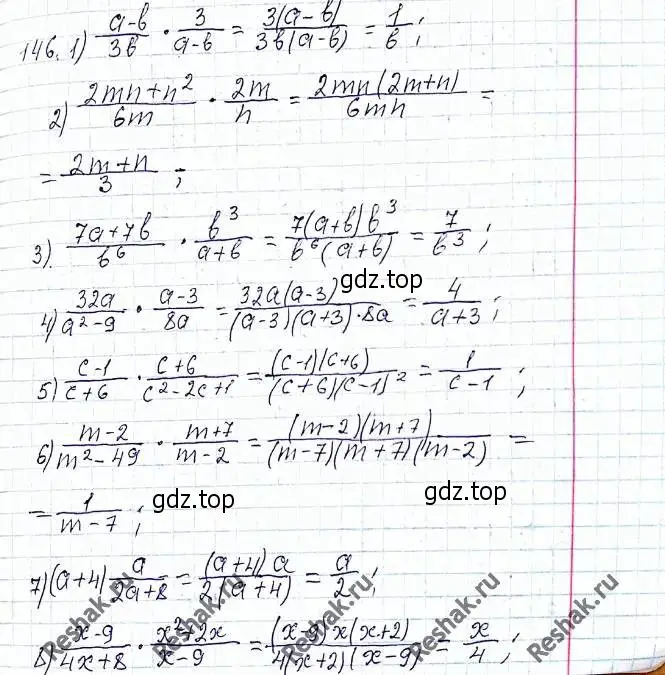 146. 1) (a-b)/(3b) · 3/(a-b) = 3(a-b)/(3b(a-b)) = 1/b ;
2) (2mn+n²)/(6m) · 2m/n = 2mn(2m+n)/(6mn) =
= (2m+n)/3 ;
3) (7a+7b)/b⁶ · b³/(a+b) = 7(a+b)b³/(b⁶(a+b)) = 7/b³ ;
gdz.top
4) 32a/(a²-9) · (a-3)/(8a) = 32a(a-3)/((a-3)(a+3)·8a) = 4/(a+3) ;
5) (c-1)/(c+6) · (c+6)/(c²-2c+1) = (c-1)(c+6)/((c+6)(c-1)²) = 1/(c-1) ;
6) (m-2)/(m²-49) · (m+7)/(m-2) = (m-2)(m+7)/((m-7)(m+7)(m-2)) =
= 1/(m-7) ;
gdz.top
7) (a+4) a/(2a+8) = (a+4)a/(2(a+4)) = a/2 ;
8) (x-9)/(4x+8) · (x²+2x)/(x-9) = (x-9)x(x+2)/(4(x+2)(x-9)) = x/4 ;
Reshak.ru
Reshak.ru
Reshak.ru
Reshak.ru